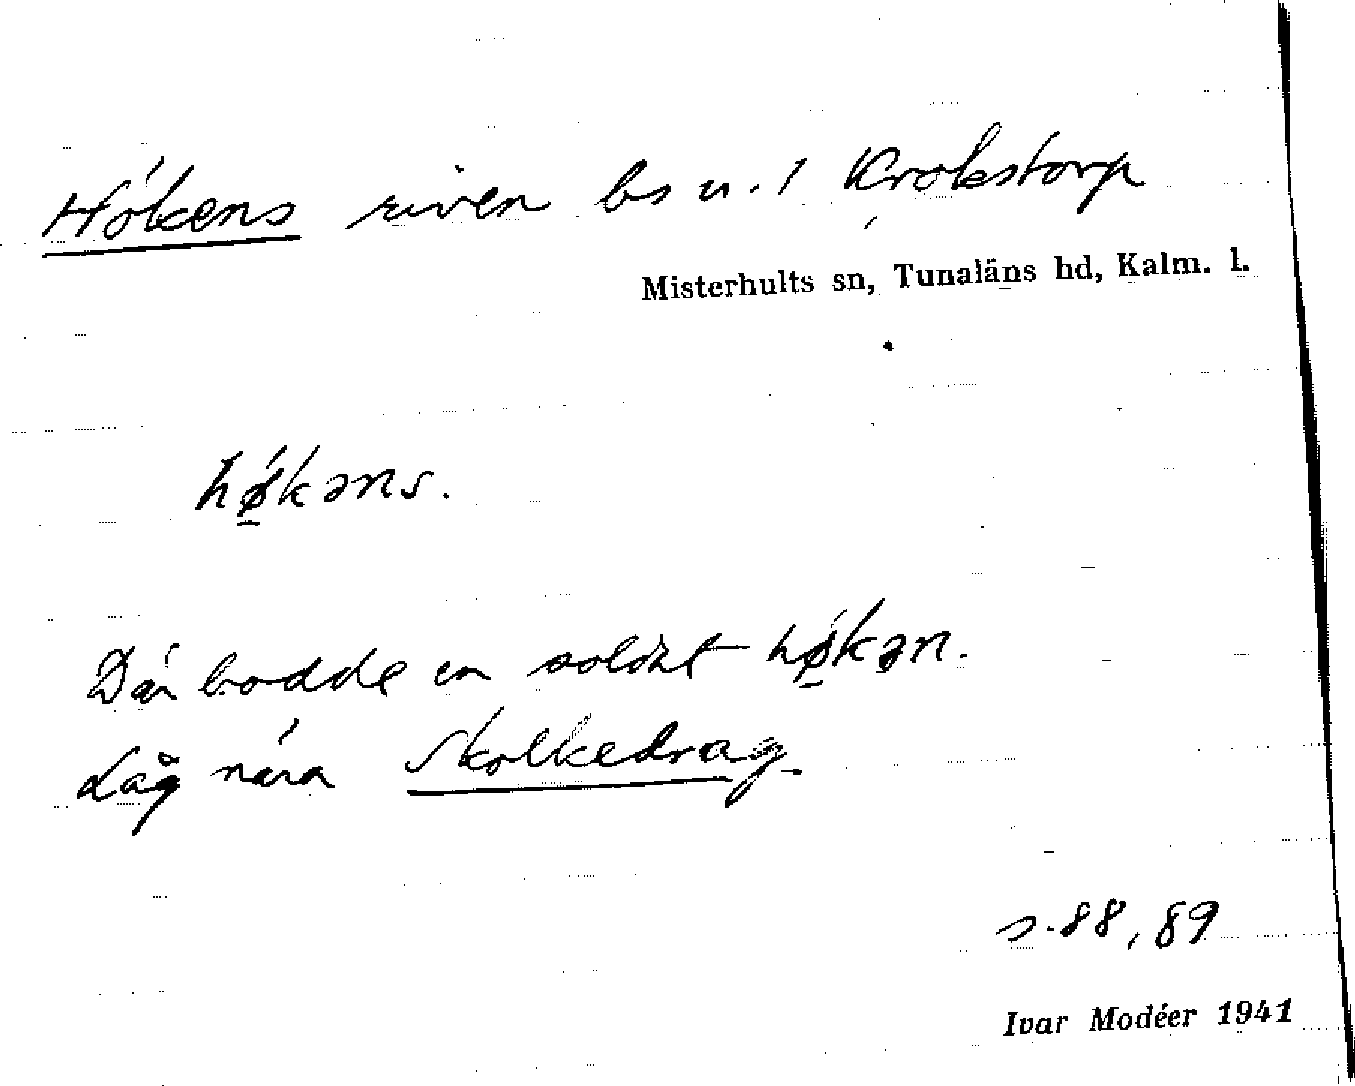 Hökens riven bs u. 1 Krokstorp
Misterhults sn, Tunaläns hd, Kalm. l.
hǿ̱kəns.
Där bodde en soldat hǿ̱kən.
Låg nära Skolkedrag.
s. 88, 89
Ivar Modéer 1941